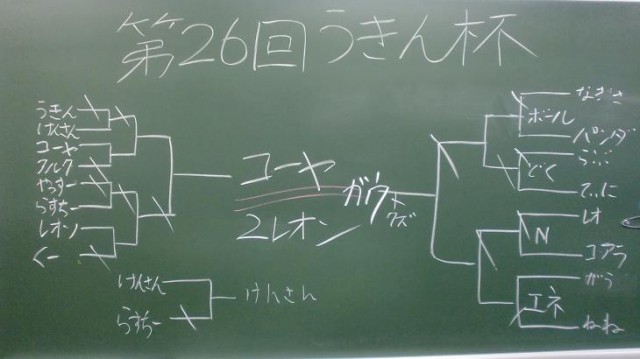 第26回うきん杯
うきん
けんさん
コーヤ
フルク
やっすー
らすちー
レオン
くー
コーヤ
2レオン
ガウ
けんさん
らすちー
けんさん
なぎさ
ボール
パンダ
どく
てぃに
レオ
N
コアラ
がう
エネ
ねね